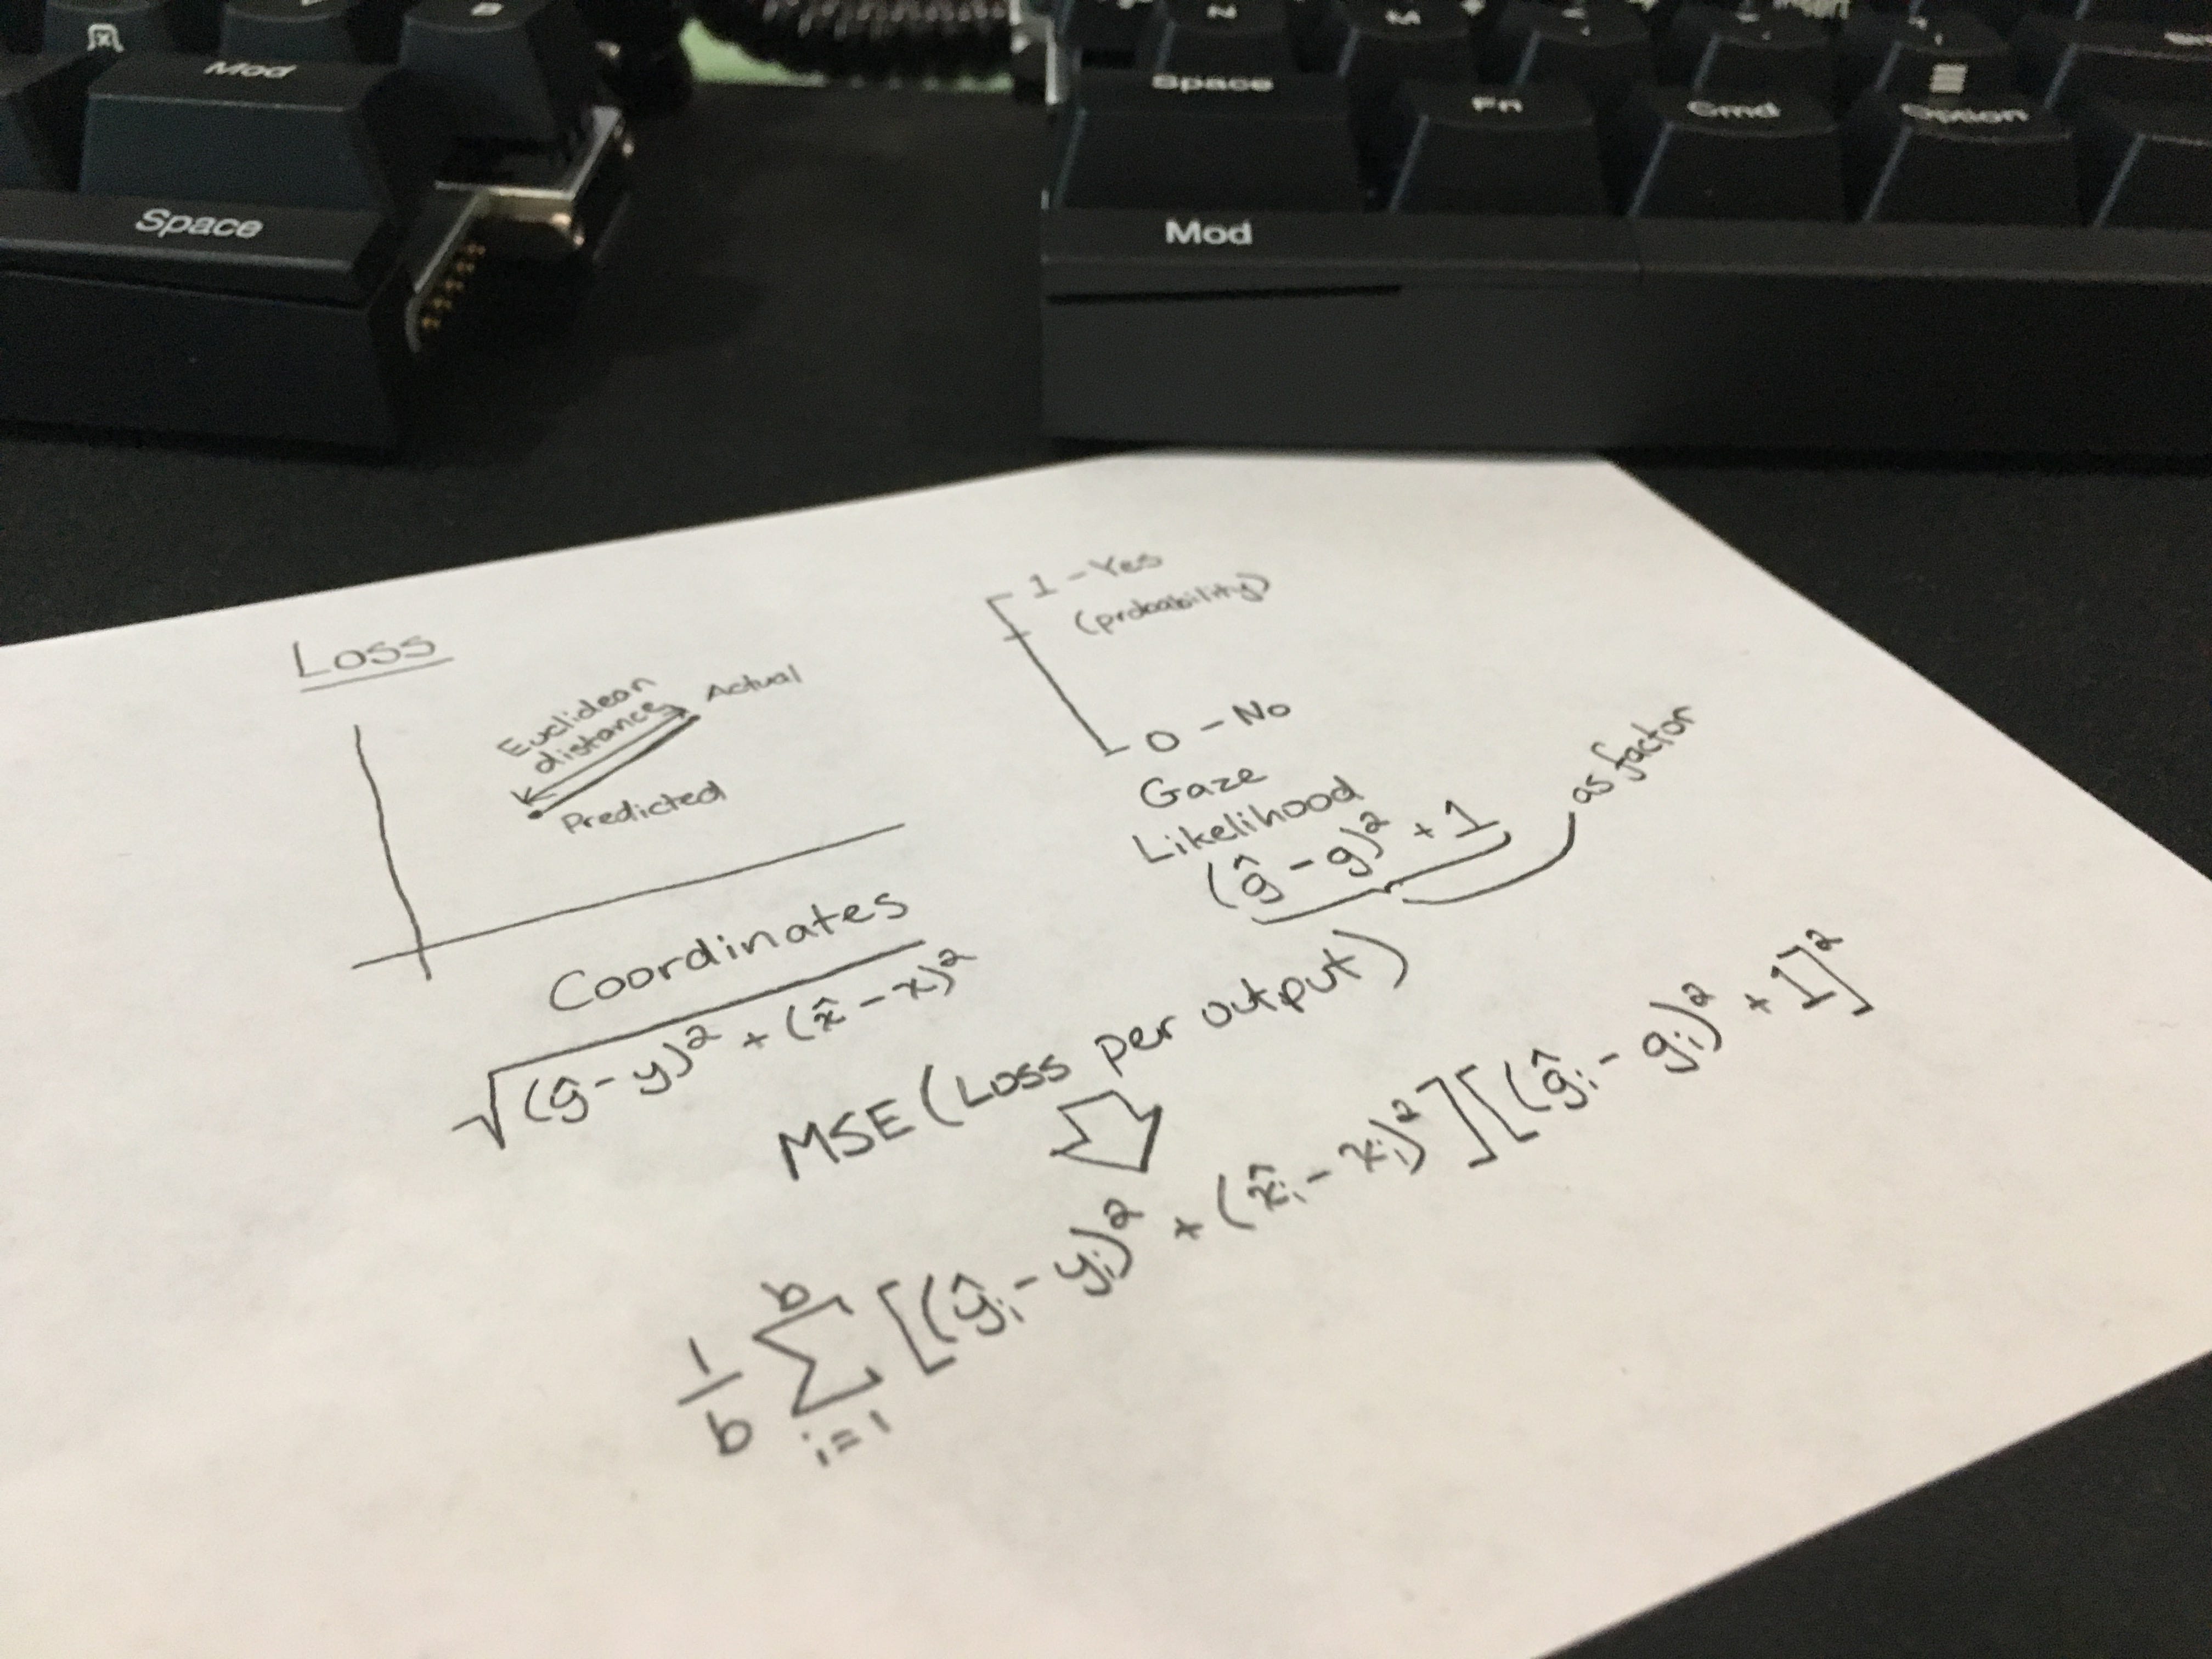 Mod
Space
N
M
Space
Fn
Cmd
Option
Mod
Loss
Euclidean
distance
Actual
Predicted
Coordinates
√(ŷ-y)² + (x̂-x)²
1 - Yes
(probability)
0 - No
Gaze
Likelihood
(ĝ-g)² + 1
as factor
MSE (Loss per output)
1/b b Σ i=1 [(ŷᵢ-yᵢ)² + (x̂ᵢ-xᵢ)²][(ĝᵢ-gᵢ)² + 1]²